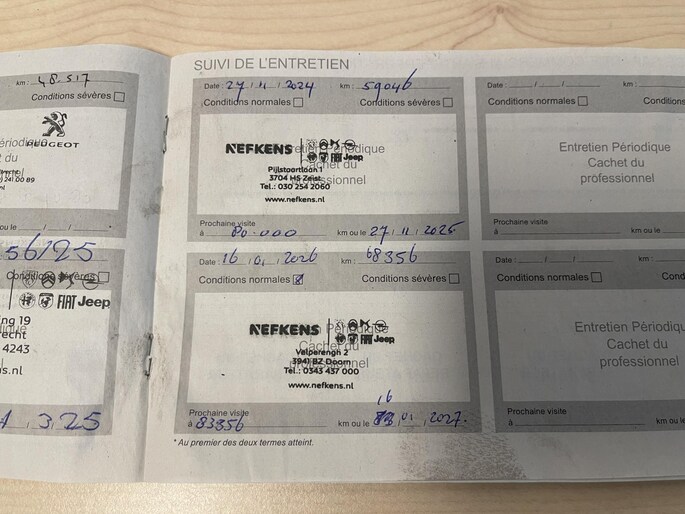 km : 48.517
Conditions sévères
PEUGEOT
56/25
Conditions sévères
FIAT Jeep
ing 19
recht
4243
ns.nl
3, 25
SUIVI DE L'ENTRETIEN
Date : 27 / 11 / 2024 km : 59046
Conditions normales Conditions sévères
Entretien Périodique
Cachet du
professionnel
NEFKENS FIAT Jeep
Pijlstaartlaan 1
3704 HS Zeist
Tel.: 030 254 2060
www.nefkens.nl
Prochaine visite
à 80.000 km ou le 27 / 11 / 2025
Date : 16 / 01 / 2026 km : 68356
Conditions normales Conditions sévères
Entretien Périodique
Cachet du
professionnel
NEFKENS FIAT Jeep
Valperengh 2
3941 BZ Doorn
Tel.: 0343 437 000
www.nefkens.nl
Prochaine visite
16
à 83356 km ou le 01 / 2027.
* Au premier des deux termes atteint.
Date : / / km :
Conditions normales Conditions
Entretien Périodique
Cachet du
professionnel
Prochaine visite
à km ou le /
Date : / / km :
Conditions normales Conditions
Entretien Périodique
Cachet du
professionnel
Prochaine visite
à km ou le /